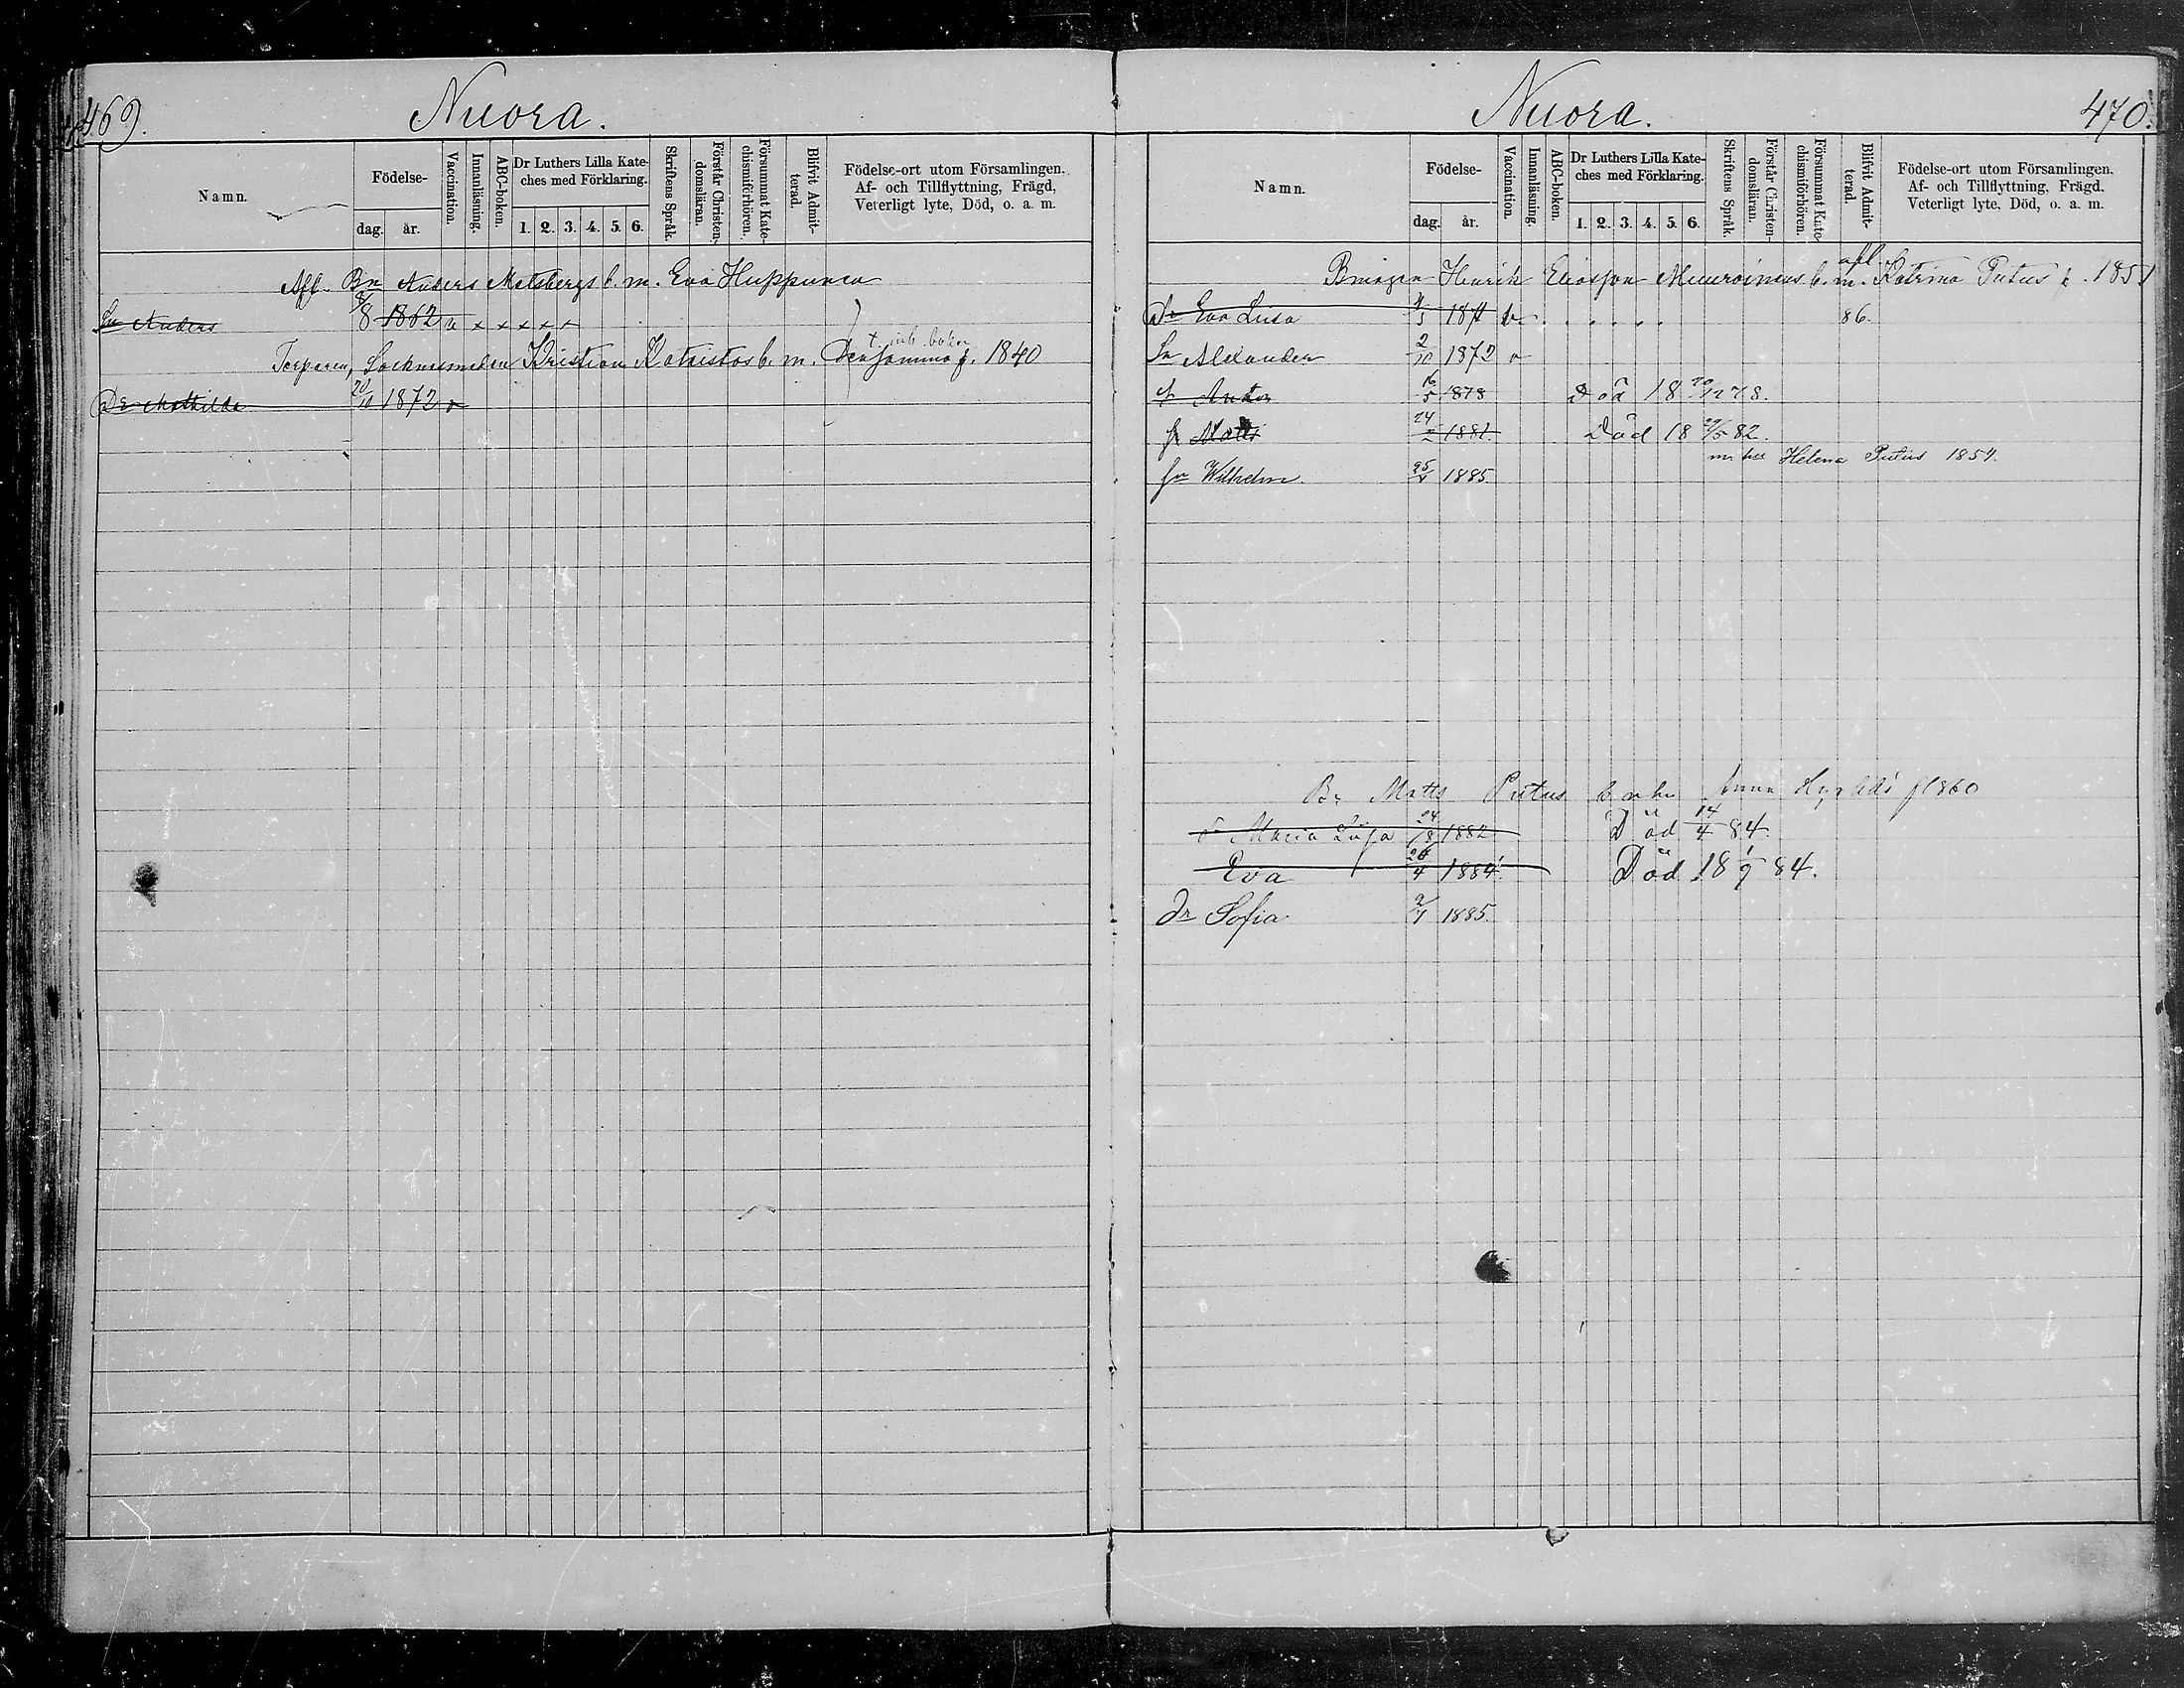 469.
Nuora.
Namn.
Födelse-
dag.
år.
Vaccination.
Innanläsning.
ABC-boken.
Dr Luthers Lilla Kate-
ches med Förklaring.
1. 2. 3. 4. 5. 6.
Skriftens Språk.
Förstår Christen-
domsläran.
Försummat Kate-
chismiförhören.
Blifvit Admit-
terad.
Födelse-ort utom Församlingen.
Af- och Tillflyttning, Frägd,
Veterligt lyte, Död, o. a. m.
Afl. Bn Anders Matsbergs b. m. Eva Huppunen
Sn Anders 8/8 1862 v x x x x x
Torparen, Socknesmeden Kristian b. m. f. 1840
Dr Mathilda 20/10 1872 v
Nuora.
470.
Namn.
Födelse-
dag.
år.
Vaccination.
Innanläsning.
ABC-boken.
Dr Luthers Lilla Kate-
ches med Förklaring.
1. 2. 3. 4. 5. 6.
Skriftens Språk.
Förstår Christen-
domsläran.
Försummat Kate-
chismiförhören.
Blifvit Admit-
terad.
Födelse-ort utom Församlingen.
Af- och Tillflyttning, Frägd.
Veterligt lyte, Död, o. a. m.
afl.
Henrik Eliasson Muuroinens b. m. Katrina Putus f. 1851
Dr Eva Lisa 1871 v 86.
Sn Alexander 2/10 1872 v
Anton 16/5 1878 Död 18 20/12 78.
Matts 24/2 1882. Död 18 29/5 82.
Helena Putus 1854.
Sn Wilhelm 1885.
Bn Matts Putus b m hu Anna f 1860
Maria Lisa 24/8 1882 Död 14/4 84.
Eva 4 1884. Död 18 1/9 84.
Dr Sofia 1885.